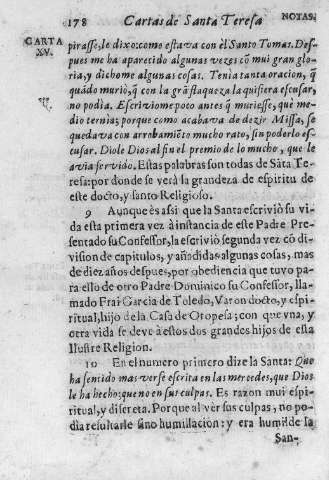 178 Cartas de Santa Teresa
NOTAS.
CARTA
XV.
pirasse, le dixo: como estava con èl Santo Tomas. Des-
pues me ha aparecido algunas vezes cõ mui gran glo-
ria, y dichome algunas cosas. Tenia tanta oracion, q̃
quãdo muriò, q̃ con la grã flaqueza la quisiera escusar,
no podia. Escriviome poco antes q̃ muriesse, què me-
dio ternia; porque como acabava de dezir Missa, se
quedava con arrobamiẽto mucho rato, sin poderlo es-
cusar. Diole Dios al fin el premio de lo mucho, que le
avia servido. Estas palabras son todas de Sãta Te-
resa: por donde se verà la grandeza de espiritu de
este docto, y santo Religioso.
9 Aunque es assi que la Santa escriviò su vi-
da esta primera vez à instancia de este Padre Pre-
sentado su Confessor, la escriviò segunda vez cõ di-
vision de capitulos, y añadidas algunas cosas, mas
de diez años despues, por obediencia que tuvo pa-
ra ello de otro Padre Dominico su Confessor, lla-
mado Frai Garcia de Toledo, Varon docto, y espi-
ritual, hijo de la Casa de Oropesa; con que vna, y
otra vida se deve à estos dos grandes hijos de esta
Ilustre Religion.
10 En el numero primero dize la Santa: Que
ha sentido mas verse escrita en las mercedes, que Dios
le ha hecho: que no en sus culpas. Es razon mui espi-
ritual, y discreta. Porque al ver sus culpas, no po-
dia resultarle sino humillacion: y era humilde la
San-